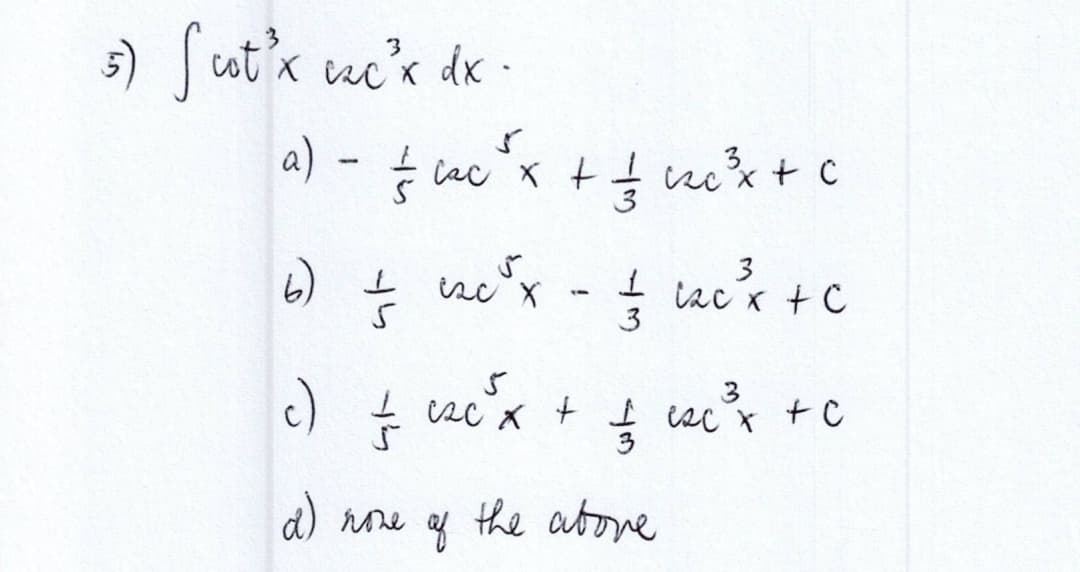 5) ∫ cot³x csc³x dx .
a) - 1/5 csc⁵x + 1/3 csc³x + C
b) 1/5 csc⁵x - 1/3 csc³x + C
c) 1/5 csc⁵x + 1/3 csc³x + C
d) none of the above